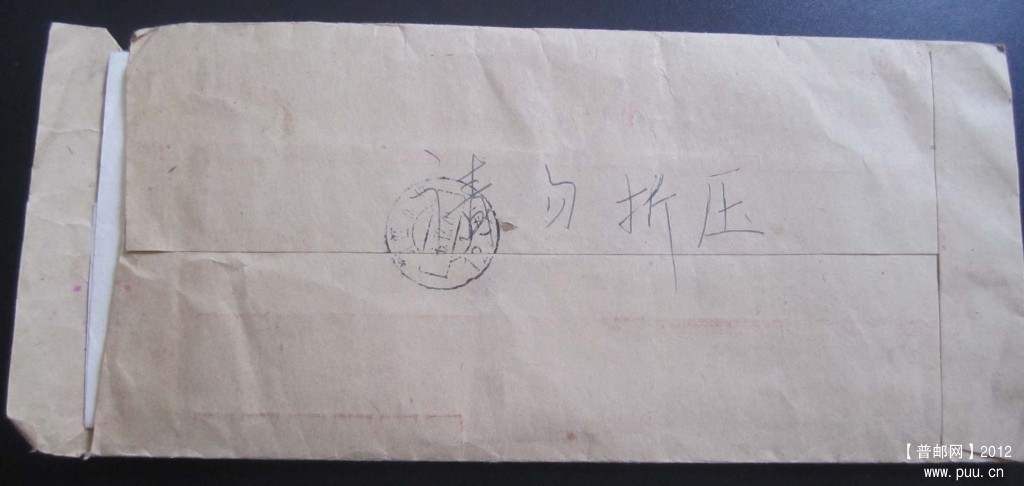 请勿折压
【普邮网】2012
www.puu.cn